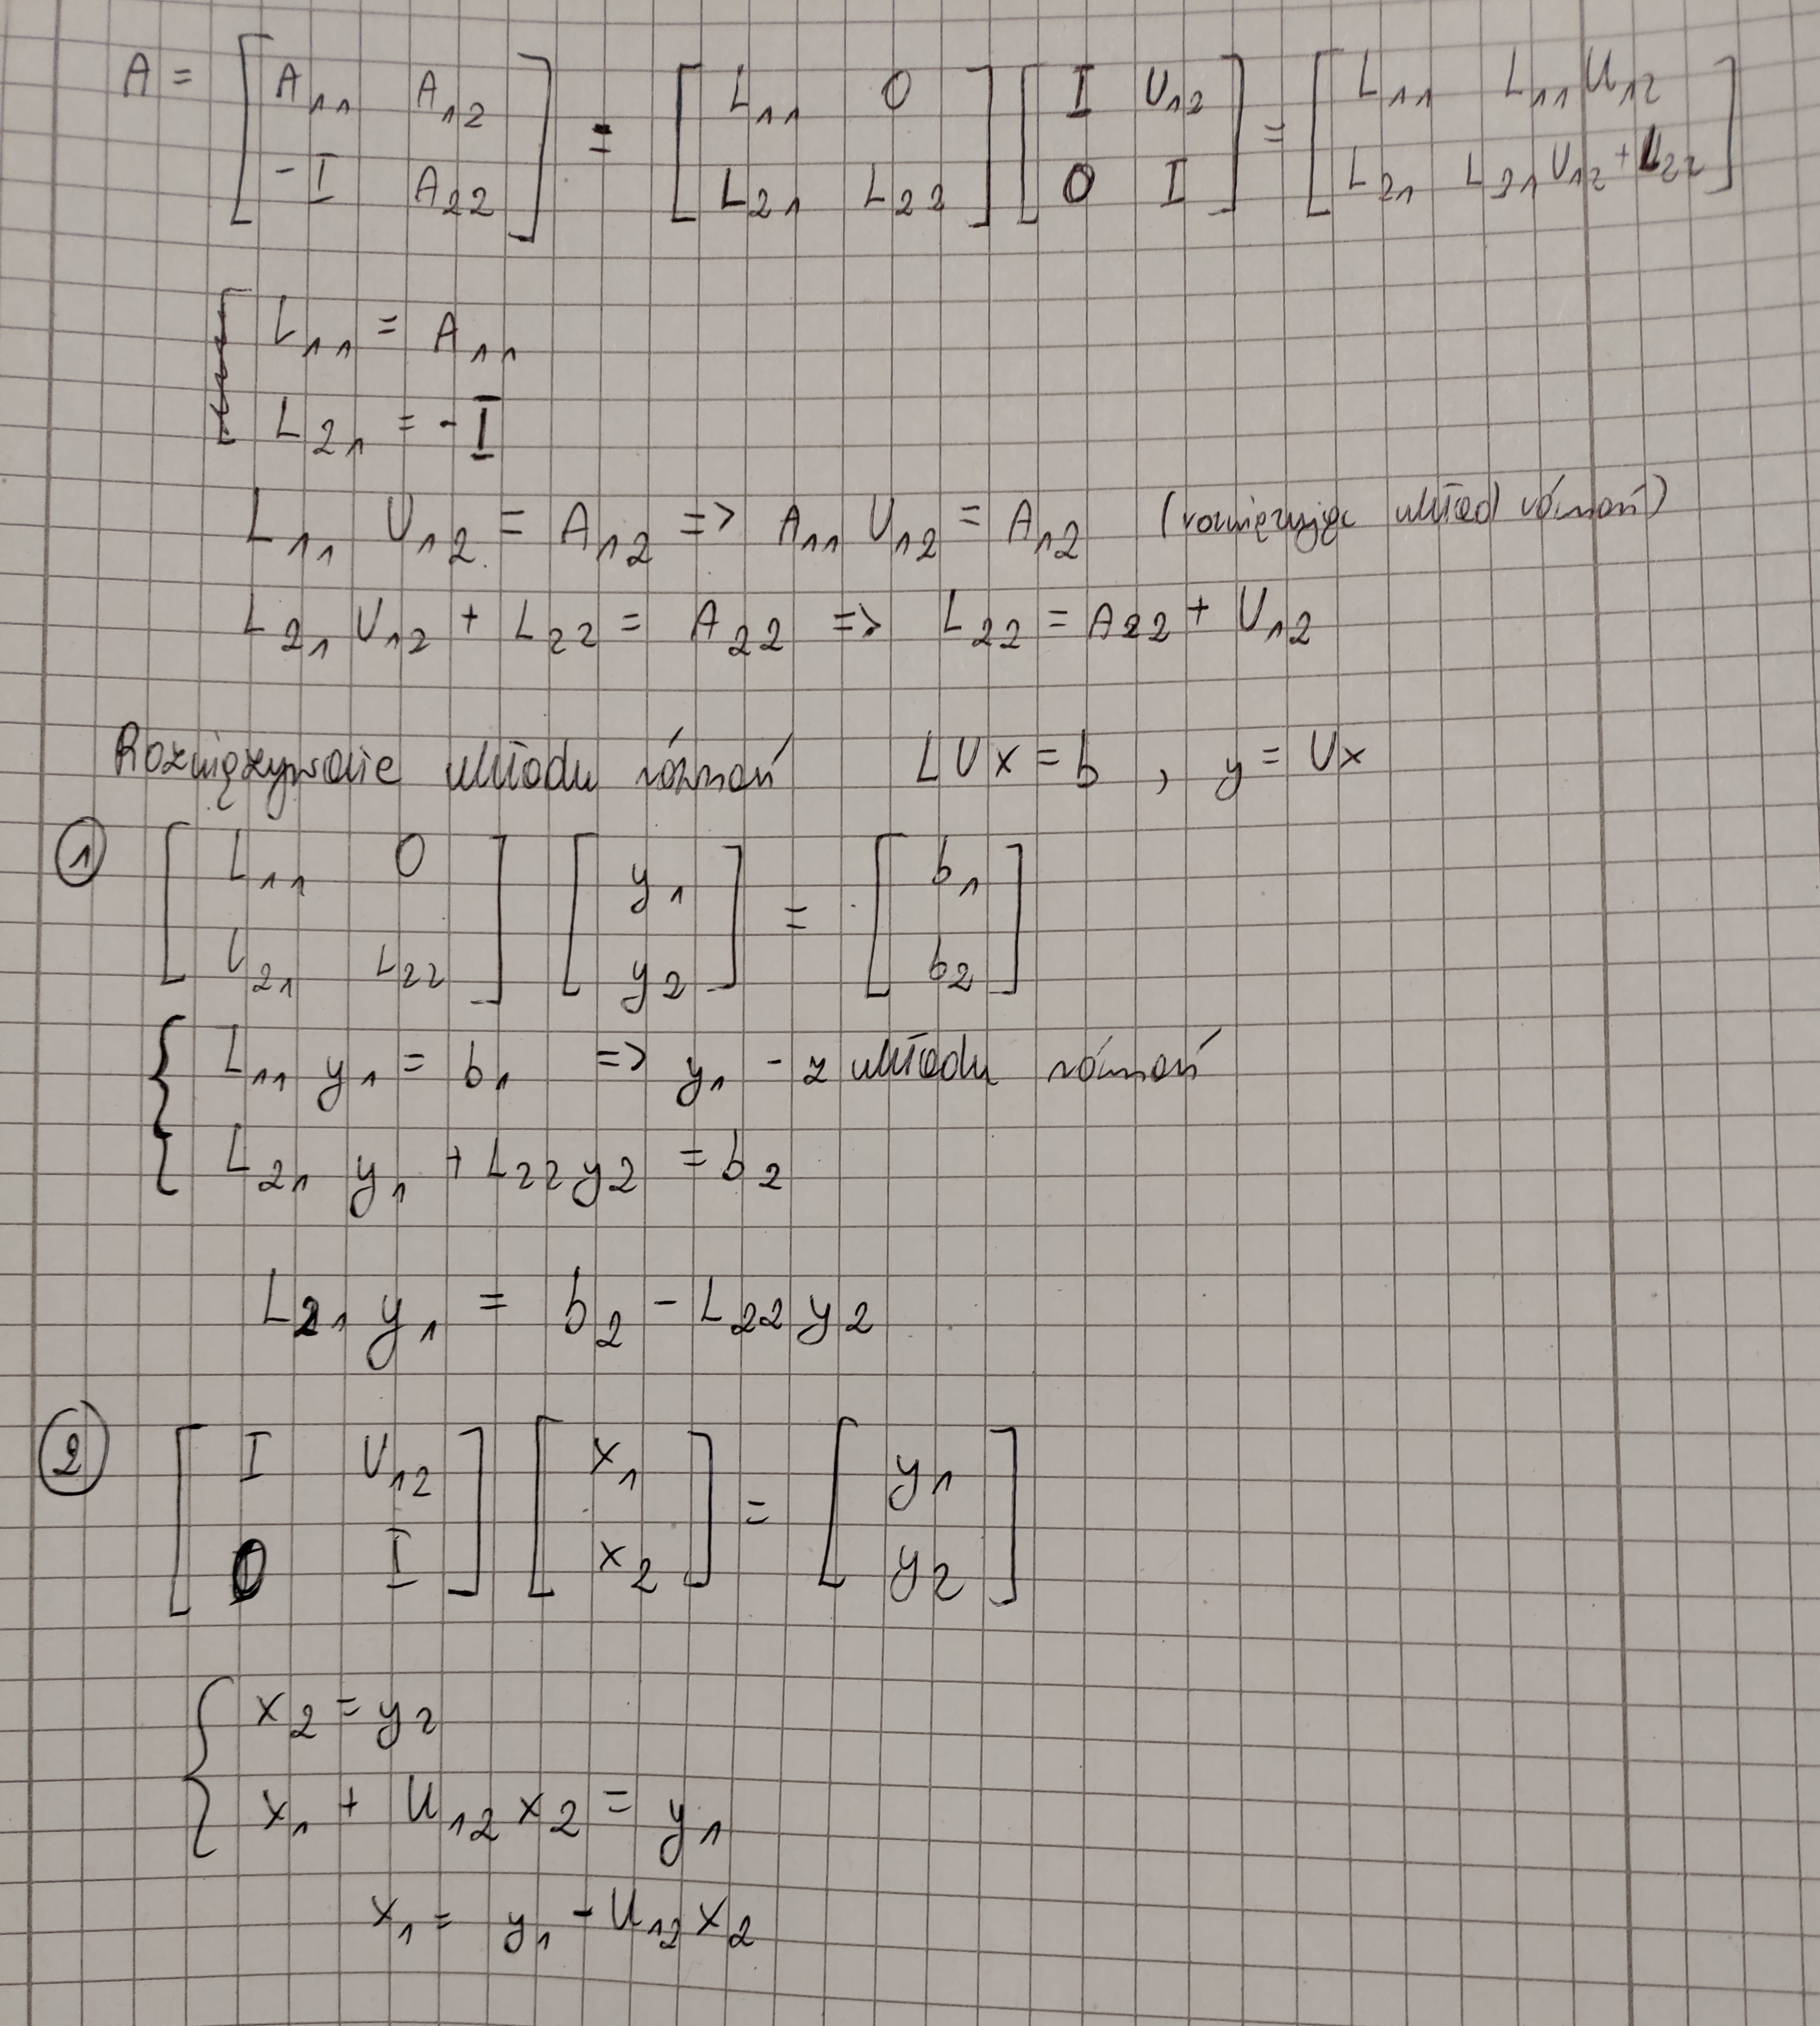 A = [ A₁₁ A₁₂ ; -I A₂₂ ] = [ L₁₁ 0 ; L₂₁ L₂₂ ] [ I U₁₂ ; 0 I ] = [ L₁₁ L₁₁U₁₂ ; L₂₁ L₂₁U₁₂ + L₂₂ ]
L₁₁ = A₁₁
L₂₁ = -I
L₁₁ U₁₂ = A₁₂ => A₁₁ U₁₂ = A₁₂ (rozwiązując układ równań)
L₂₁ U₁₂ + L₂₂ = A₂₂ => L₂₂ = A₂₂ + U₁₂
Rozwiązywanie układu równań LUx = b , y = Ux
① [ L₁₁ 0 ; L₂₁ L₂₂ ] [ y₁ ; y₂ ] = [ b₁ ; b₂ ]
{ L₁₁ y₁ = b₁ => y₁ - z układu równań
L₂₁ y₁ + L₂₂ y₂ = b₂
L₂₁ y₁ = b₂ - L₂₂ y₂
② [ I U₁₂ ; 0 I ] [ x₁ ; x₂ ] = [ y₁ ; y₂ ]
{ x₂ = y₂
x₁ + U₁₂ x₂ = y₁
x₁ = y₁ - U₁₂ x₂